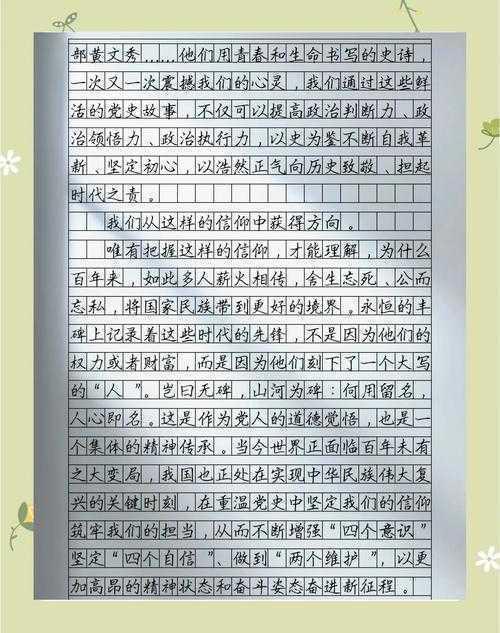 部黄文秀……他们用青春和生命书写的史诗，
一次又一次震撼我们的心灵，我们通过这些鲜
活的党史故事，不仅可以提高政治判断力、政
治领悟力、政治执行力，以史为鉴不断自我革
新、坚定初心，以浩然正气向历史致敬、担起
时代之责。
我们从这样的信仰中获得方向。
唯有把握这样的信仰，才能理解，为什么
百年来，如此多人薪火相传，舍生忘死、公而
忘私，将国家民族带到更好的境界。永恒的丰
碑上记录着这些时代的先锋，不是因为他们的
权力或者财富，而是因为他们刻下了一个大写
的“人”。岂曰无碑，山河为碑：何用留名，
人心即名。这是作为党人的道德觉悟，也是一
个集体的精神传承。当今世界正面临百年未有
之大变局，我国也正处在实现中华民族伟大复
兴的关键时刻，在重温党史中坚定我们的信仰
筑牢我们的担当，从而不断增强“四个意识”
坚定“四个自信”、做到“两个维护”，以更
加高昂的精神状态和奋斗姿态奋进新征程。